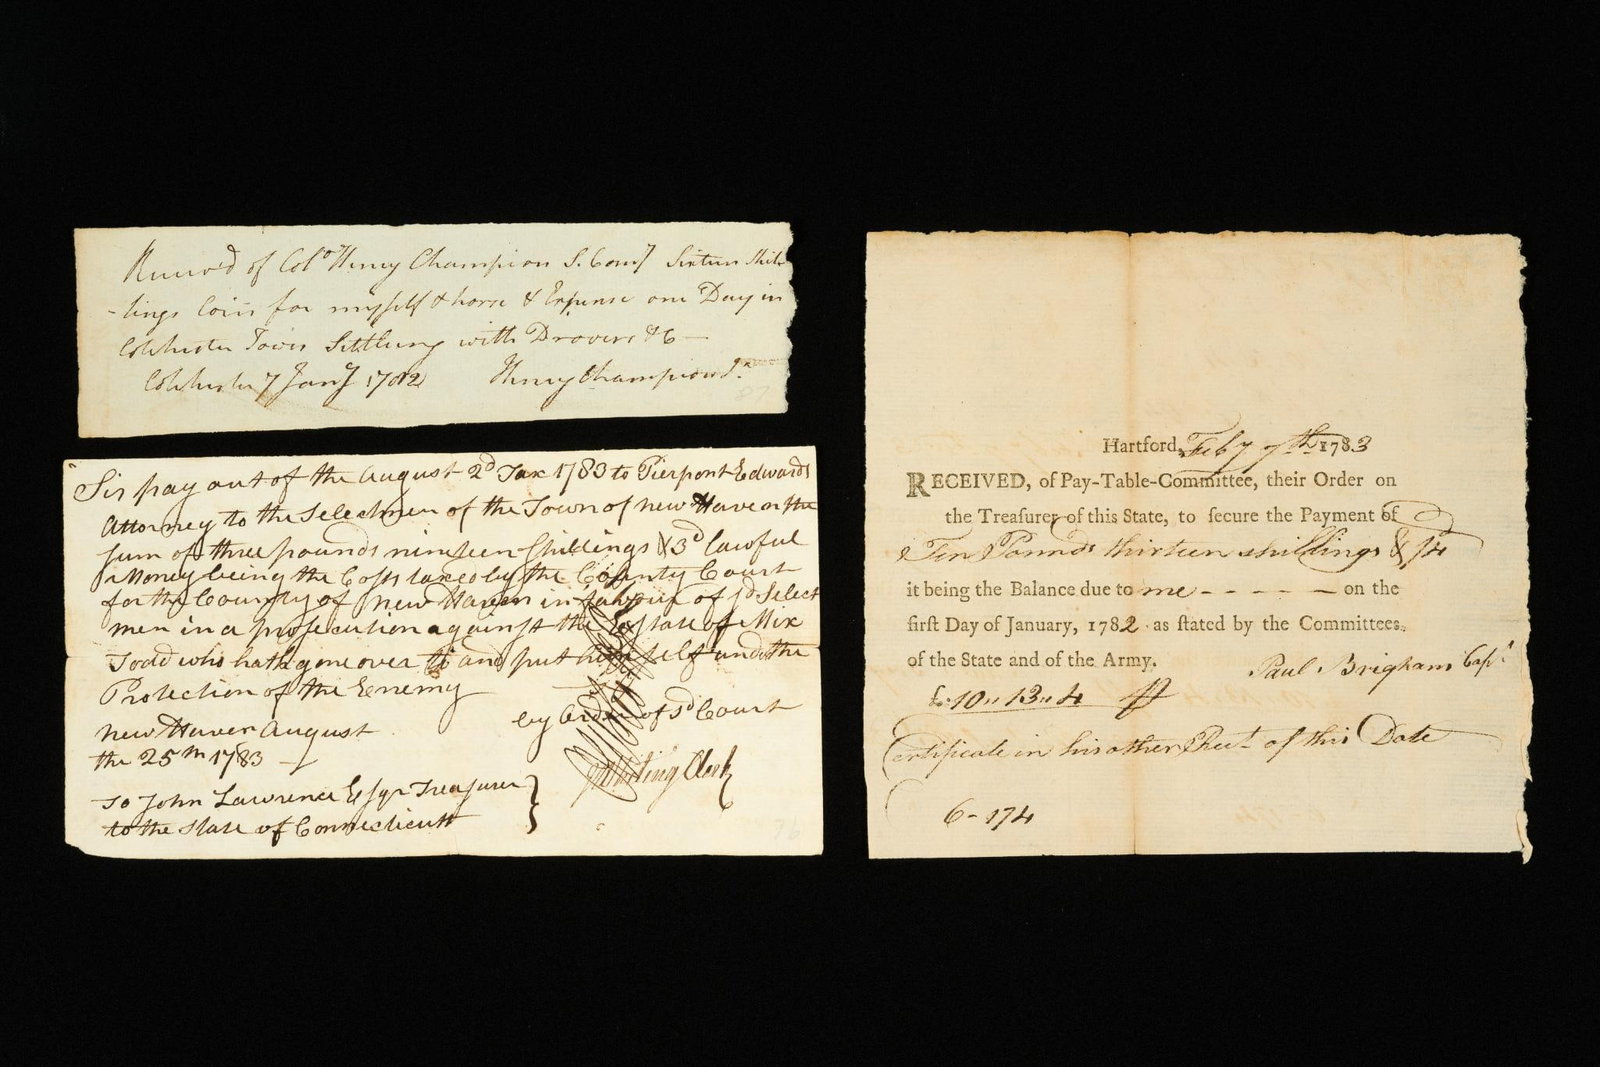 Receiv'd of Colo Henry Champion S. Comy Sixteen Shil-
-lings Coin for myself & horse & Expense one Day in
Colchester Town Settling with Drovers &c
Colchester 7 Jany 1782 Henry Champion Jr
Sir pay out of the August 2d Tax 1783 to Pierpont Edwards
Attorney to the Selectmen of the Town of new Haven the
sum of three pounds nineteen shillings & 3d lawful
Money being the Costs taxed by the County Court
for the County of New Haven in favour of sd Select
men in a prosecution against the Estate of Mix
Todd who hath gone over to and put himself under the
Protection of the Enemy
new Haven August by Order of sd Court
the 25th 1783
Whiting Clerk
To John Lawrence Esqr Treasurer
to the State of Connecticutt
Hartford, Feby 7th 1783
RECEIVED, of Pay-Table-Committee, their Order on
the Treasurer of this State, to secure the Payment of
Ten Pounds thirteen shillings & /4
it being the Balance due to me - - - - - on the
first Day of January, 1782 as stated by the Committees
of the State and of the Army.
Paul Brigham Capt
£10,, 13,, 4
Certificate in his other Rect of this Date
6-174